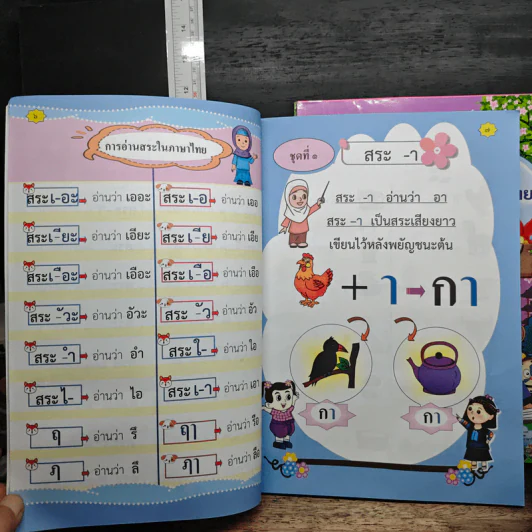 ๖
การอ่านสระในภาษาไทย
สระเ-อะ อ่านว่า เออะ
สระ เ-อ อ่านว่า เออ
สระเ-ียะ อ่านว่า เอียะ
สระ เ-ีย อ่านว่า เอีย
สระเ-ือะ อ่านว่า เอือะ
สระ เ-ือ อ่านว่า เอือ
สระ -ัวะ อ่านว่า อัวะ
สระ -ัว อ่านว่า อัว
สระ -ำ อ่านว่า อำ
สระ ใ- อ่านว่า ไอ
สระ ไ- อ่านว่า ไอ
สระ เ-า อ่านว่า เอา
ฤ อ่านว่า รึ
ฤๅ อ่านว่า รือ
ฦ อ่านว่า ลึ
ฦๅ อ่านว่า ลือ
๗
ชุดที่ ๑
สระ -า
สระ -า อ่านว่า อา
สระ -า เป็นสระเสียงยาว
เขียนไว้หลังพยัญชนะต้น
+ า กา
กา
กา